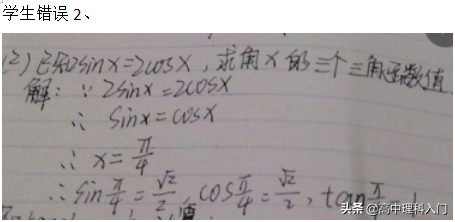 学生错误 2、
(2) 已知2sinx=2cosx,求角x的三个三角函数值
解: ∵ 2sinx=2cosx
∴ sinx=cosx
∴ x=π/4
∴ sin π/4 = √2/2, cos π/4 = √2/2, tan π
头条 @高中理科入门